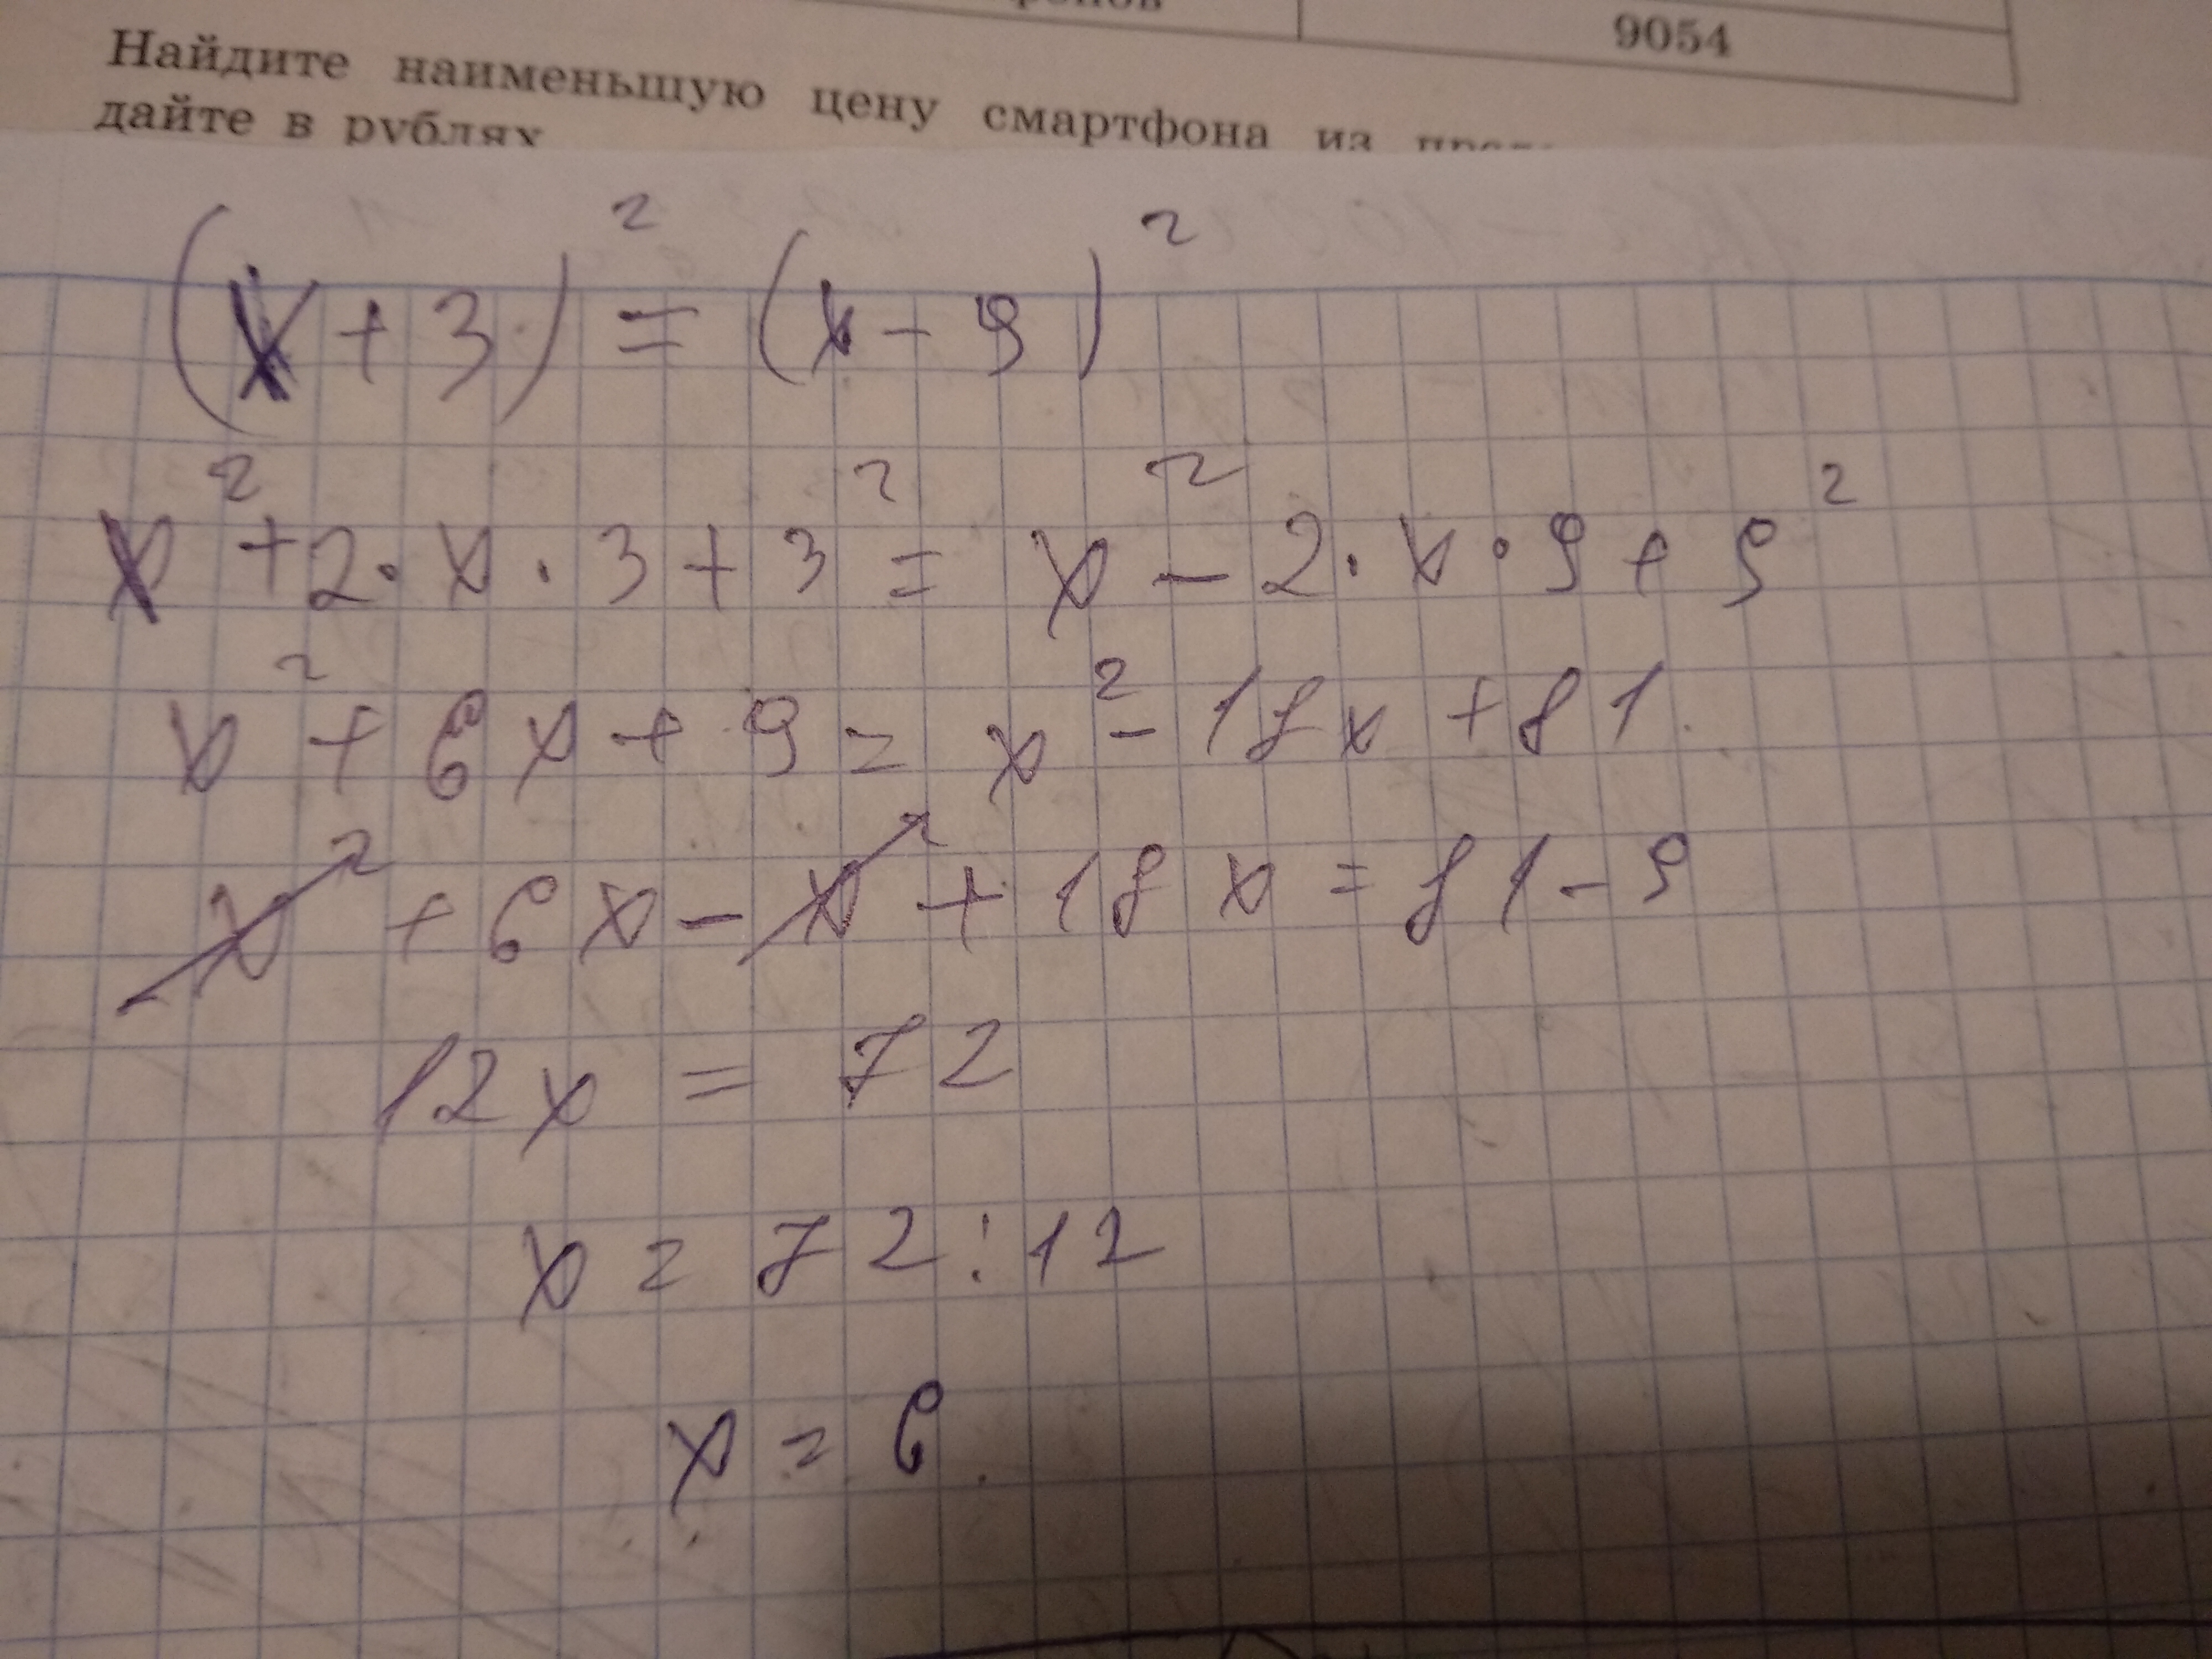 9054
Найдите наименьшую цену смартфона из
дайте в рублях
(x + 3)² = (x - 9)²
x² + 2 · x · 3 + 3² = x² - 2 · x · 9 + 9²
x² + 6x + 9 = x² - 18x + 81
x² + 6x - x² + 18x = 81 - 9
12x = 72
x = 72 : 12
x = 6